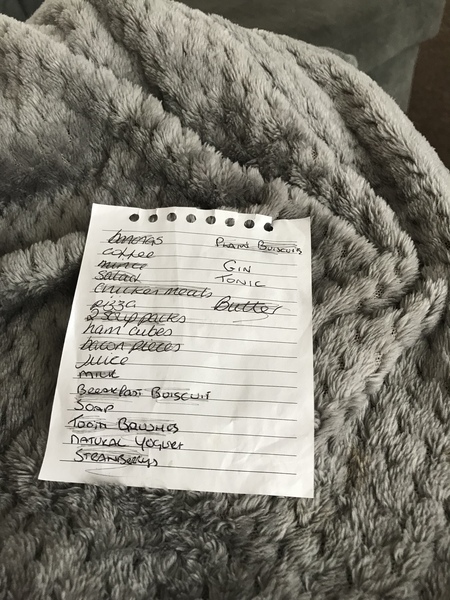 bananas
coffee
mince
salad
chicken meals
pizza
2 soup packs
ham cubes
bacon pieces
juice
MILK
BREAKFAST BUISCUIT
SOAP
TOOTH BRUSHES
NATURAL YOGURT
STRAWBERRYS
PLAIN BUISCUITS
GIN
TONIC
Butter